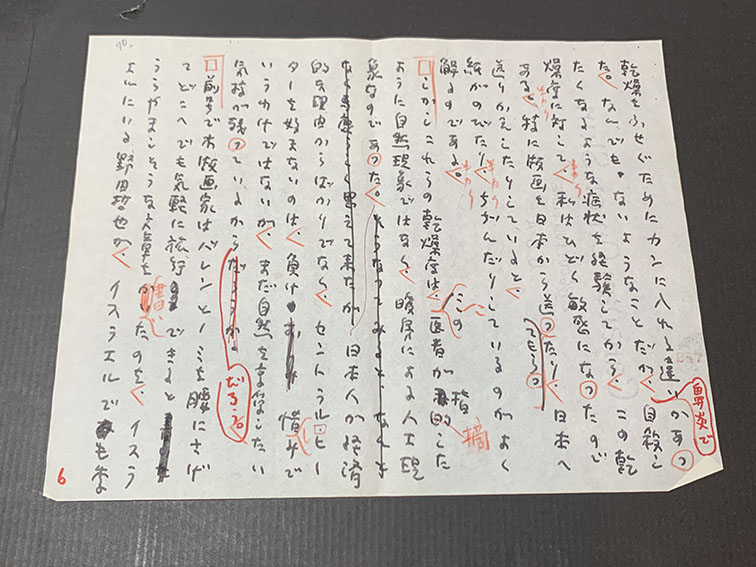 乾燥をふせぐためにカンに入れる違いがあっ
た。なんでもないようなことだが、鼻炎で自殺し
たくなるような症状を経験してから、この乾
燥度に対して、私はひどく敏感になったので
ある。特に版画を日本から送ったり、日本へ
送りかえしたりしていると、
紙がのびたり、ちぢんだりしているのがよく
解るのである。
しかしこれらの乾燥度は、この医者が指摘した
ように自然現象ではなく、暖房による人工現
象なのであった。
日本人が経済
的な理由からばかりでなく、セントラル・ヒー
ターを好まないのは、負け惜しみで
いうわけではないが、まだ自然を
気持が残っているからだろう。
前号で木版画家はバレンとノミを腰にさげ
てどこへでも気軽に旅行できると
うらやましそうな文章を書いたのを、イスラ
エルにいる野田哲也が、イスラエルでも
6